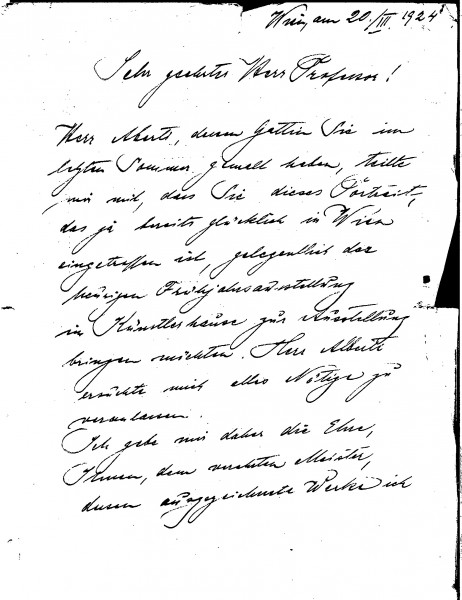 Wien, am 20./III. 1924
Sehr geehrter Herr Professor!
Herr Alberti, dessen Gattin Sie im
letzten Sommer gemalt haben, teilte
mir mit, dass Sie dieses Porträt,
das ja bereits glücklich in Wien
eingetroffen ist, gelegentlich der
heurigen Frühjahrsausstellung
im Künstlerhause zur Ausstellung
bringen möchten. Herr Alberti
ersuchte mich alles Nötige zu
veranlassen.
Ich gebe mir daher die Ehre,
Ihnen, dem verehrten Meister,
dessen ausgezeichnete Werke ich